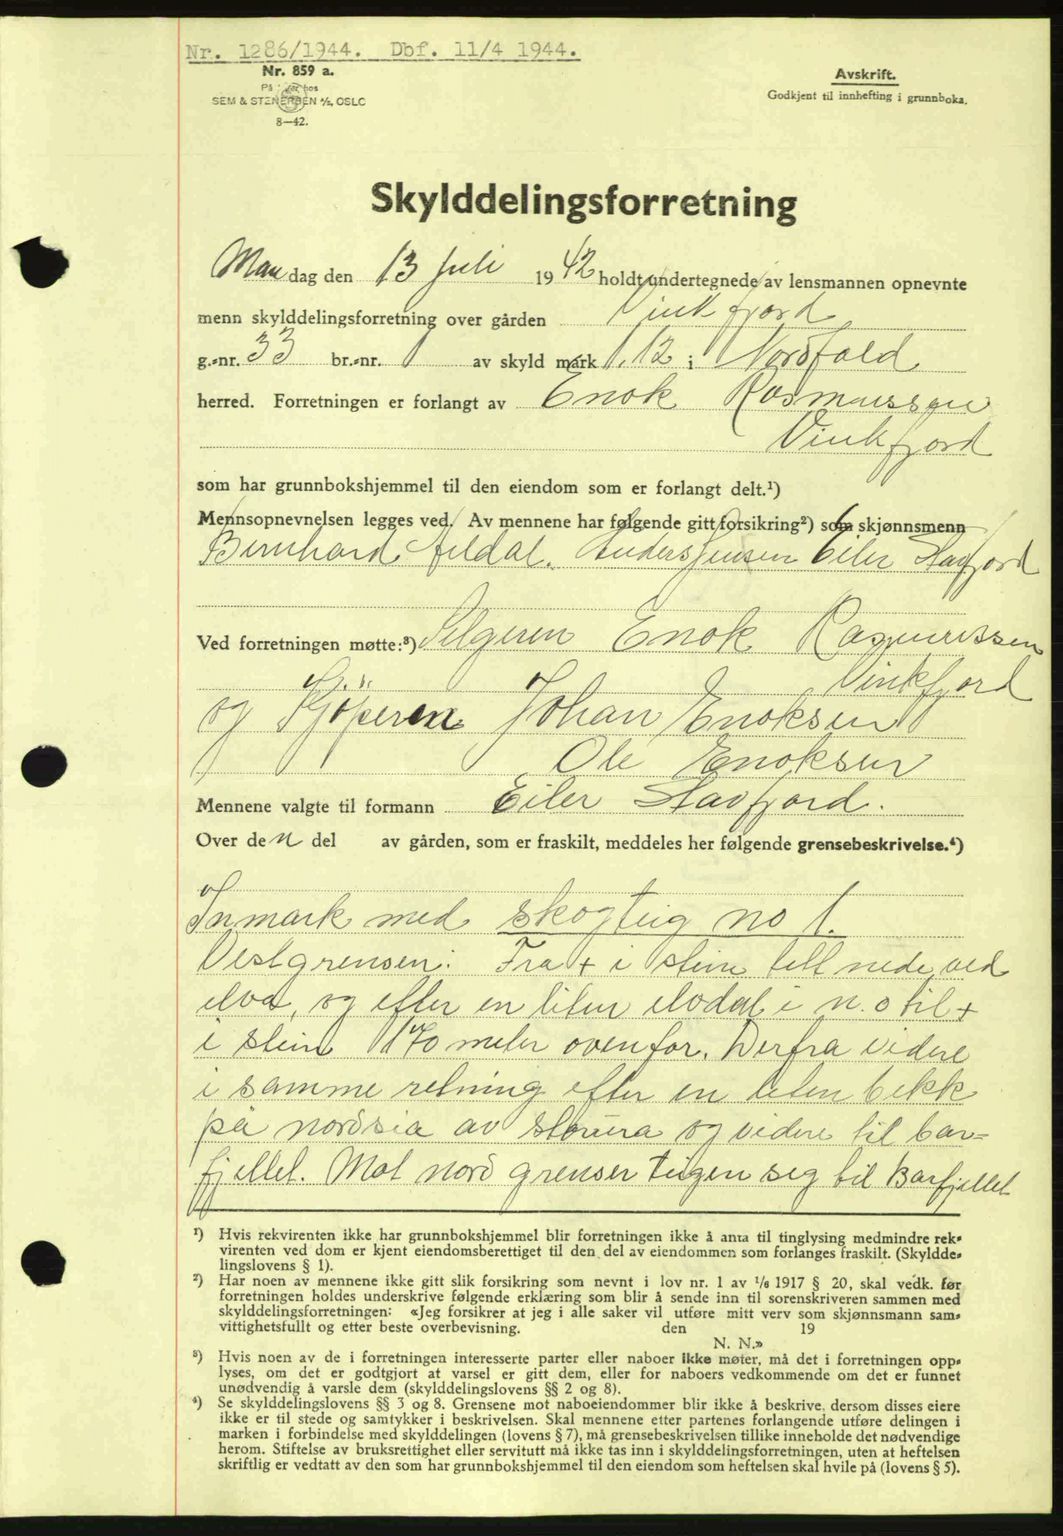 Nr. 1286/1944. Dbf. 11/4 1944.
Nr. 859 a.
På lager hos
SEM & STENERSEN A/S, OSLO
8—42.
Avskrift.
Godkjent til innhefting i grunnboka.
Skylddelingsforretning
Mandag den 13 Juli 1942 holdt undertegnede av lensmannen opnevnte
menn skylddelingsforretning over gården Vinkfjord
g.-nr. 33 br.-nr. 1 av skyld mark 1.12 i Nordfold
herred. Forretningen er forlangt av Enok Rasmussen
Vinkfjord
som har grunnbokshjemmel til den eiendom som er forlangt delt.¹)
Mennsopnevnelsen legges ved. Av mennene har følgende gitt forsikring²) som skjønnsmenn
Bernhard Aldal. Anders Jensen Eiler Stavfjord
Ved forretningen møtte:³) Selgeren Enok Rasmussen
Vinkfjord
og Kjöperen Johan Enoksen
Ole Enoksen
Mennene valgte til formann Eiler Stavfjord.
Over den del av gården, som er fraskilt, meddeles her følgende grensebeskrivelse.⁴)
Inmark med skogteig no 1.
Vestgrensen: Fra + i stein tett nede ved
elva, og efter en liten elvdal i n.o til +
i stein 170 meter ovenfor. Derfra videre
i samme retning efter en liten bekk
på nordsia av storura og videre til bar=
fjellet. Mot nord grenser teigen seg til Barfjellet
¹) Hvis rekvirenten ikke har grunnbokshjemmel blir forretningen ikke å anta til tinglysing medmindre rek-
virenten ved dom er kjent eiendomsberettiget til den del av eiendommen som forlanges fraskilt. (Skyldde-
lingslovens § 1).
²) Har noen av mennene ikke gitt slik forsikring som nevnt i lov nr. 1 av 1/6 1917 § 20, skal vedk. før
forretningen holdes underskrive følgende erklæring som blir å sende inn til sorenskriveren sammen med
skylddelingsforretningen: «Jeg forsikrer at jeg i alle saker vil utføre mitt verv som skjønnsmann sam-
vittighetsfullt og etter beste overbevisning. den 19
N. N.»
³) Hvis noen av de i forretningen interesserte parter eller naboer ikke møter, må det i forretningen opp-
lyses, om det er godtgjort at varsel er gitt dem, eller for naboers vedkommende om det er funnet
unødvendig å varsle dem (skylddelingslovens §§ 2 og 8).
⁴) Se skylddelingslovens §§ 3 og 8. Grensene mot naboeiendommer blir ikke å beskrive, dersom disses eiere
ikke er til stede og samtykker i beskrivelsen. Skal mennene etter partenes forlangende utføre delingen i
marken i forbindelse med skylddelingen (lovens § 7), må grensebeskrivelsen tillike inneholde det nødvendige
herom. Stiftelse av bruksrettighet eller servitutt må ikke tas inn i skylddelingsforretningen, uten at heftelsen
skriftlig er vedtatt av den som har grunnbokshjemmel til den eiendom som heftelsen skal hvile på (lovens § 5).